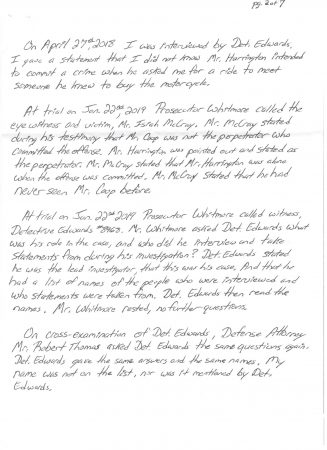 pg. 2 of 7
On April 27th, 2018 I was interviewed by Det. Edwards.
I gave a statement that I did not know Mr. Harrington intended
to commit a crime when he asked me for a ride to meet
someone he knew to buy the motorcycle.
At trial on Jan. 22nd, 2019 Prosecutor Whitmore called the
eye witness and victim, Mr. Isrieh McCray. Mr. McCray stated
during his testimony that Mr. Coop was not the perpetrator who
committed the offense. Mr. Harrington was pointed out and stated as
the perpetrator. Mr. McCray stated that Mr. Harrington was alone
when the offense was committed. Mr. McCray stated that he had
never seen Mr. Coop before.
At trial on Jan. 22nd 2019 Prosecutor Whitmore called witness,
Detective Edwards Mr. Whitmore asked Det. Edwards what
was his role in the case, and who did he interview and take
statements from during his investigation? Det. Edwards stated
he was the lead investigator, that this was his case. And that he
had a list of names of the people who were interviewed and
who statements were taken from. Det. Edwards then read the
names, Mr. Whitmore rested, no further questions.
On cross-examination of Det. Edwards, Defense Attorney
Mr. Robert Thomas asked Det. Edwards the same questions again.
Det. Edwards gave the same answers and the same names. My
name was not on the list, nor was it mentioned by Det.
Edwards.